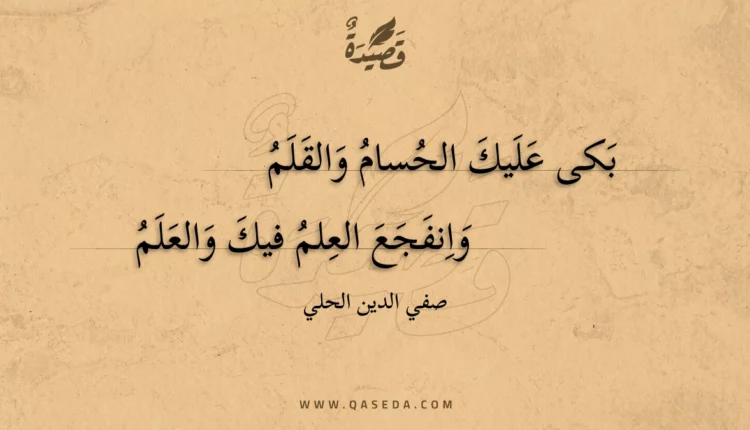 قَصِيْدَةٌ
بَكى عَلَيكَ الحُسامُ وَالقَلَمُ
وَاِنفَجَعَ العِلمُ فيكَ وَالعَلَمُ
صفي الدين الحلي
WWW.QASEDA.COM